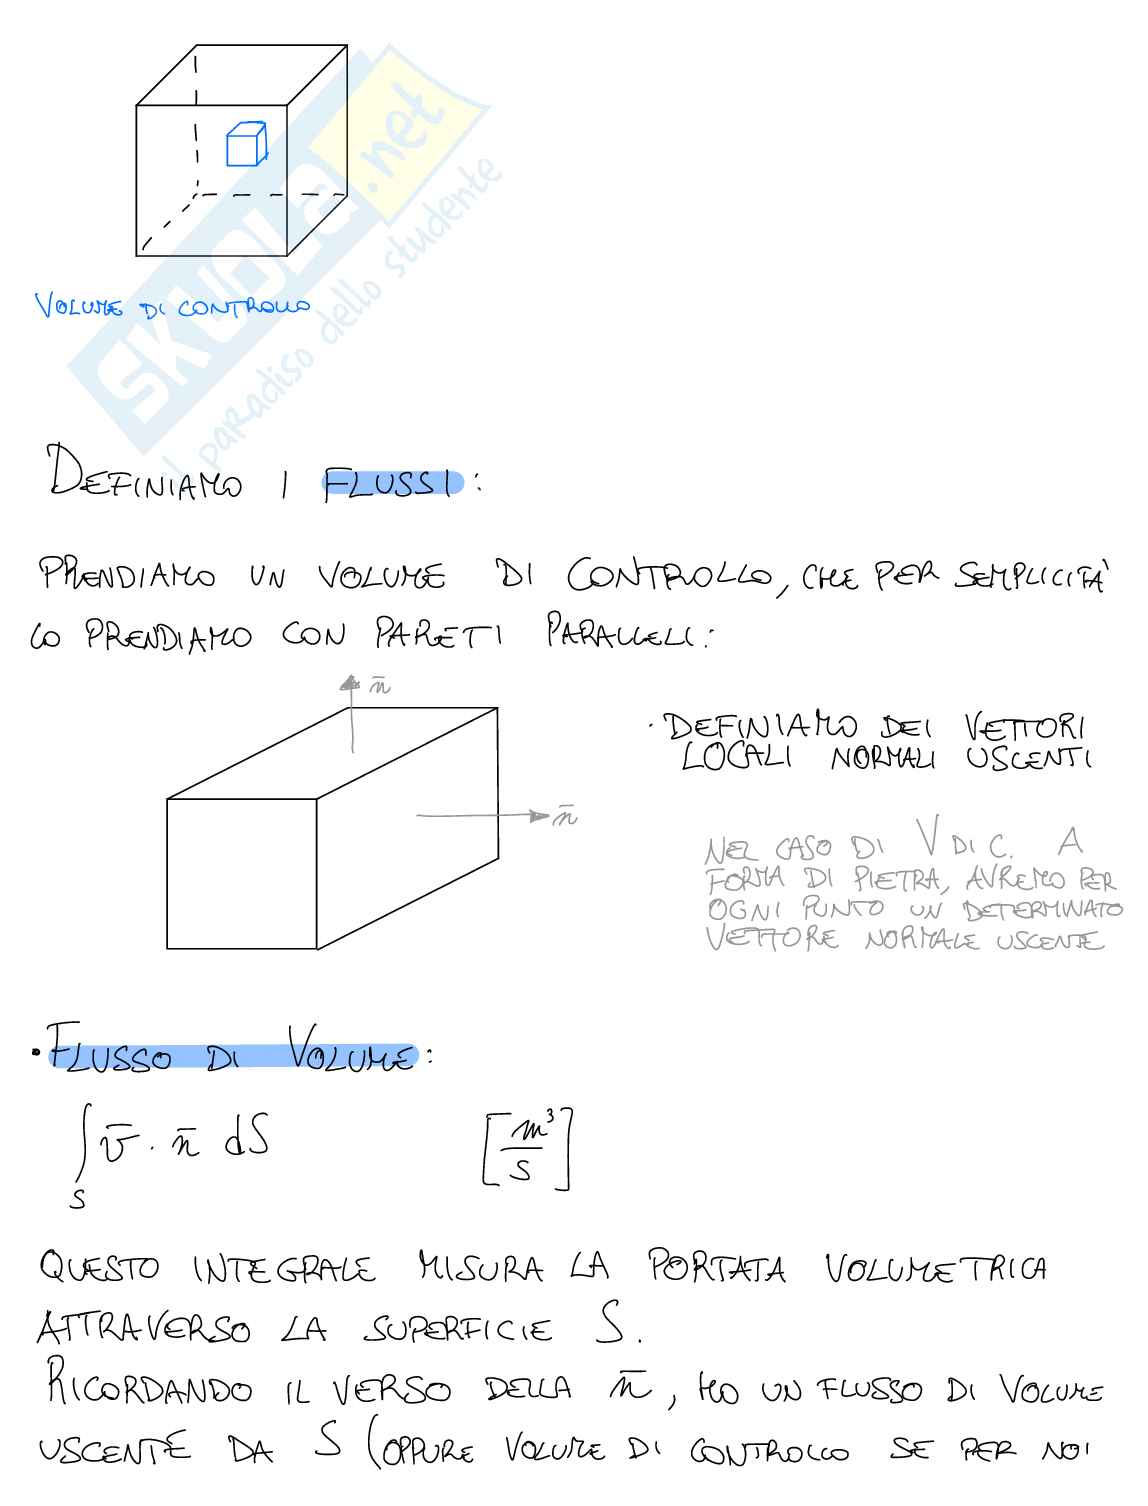 SKUOLA.net
il paradiso dello studente
VOLUME DI CONTROLLO
DEFINIAMO I FLUSSI:
PRENDIAMO UN VOLUME DI CONTROLLO, CHE PER SEMPLICITÀ
LO PRENDIAMO CON PARETI PARALLELI:
n̄
· DEFINIAMO DEI VETTORI
LOCALI NORMALI USCENTI
n̄
NEL CASO DI V DI C. A
FORMA DI PIETRA, AVREMO PER
OGNI PUNTO UN DETERMINATO
VETTORE NORMALE USCENTE
· FLUSSO DI VOLUME:
∫_S v̄ · n̄ dS [m³/s]
QUESTO INTEGRALE MISURA LA PORTATA VOLUMETRICA
ATTRAVERSO LA SUPERFICIE S.
RICORDANDO IL VERSO DELLA n̄, HO UN FLUSSO DI VOLUME
USCENTE DA S (OPPURE VOLUME DI CONTROLLO SE PER NOI